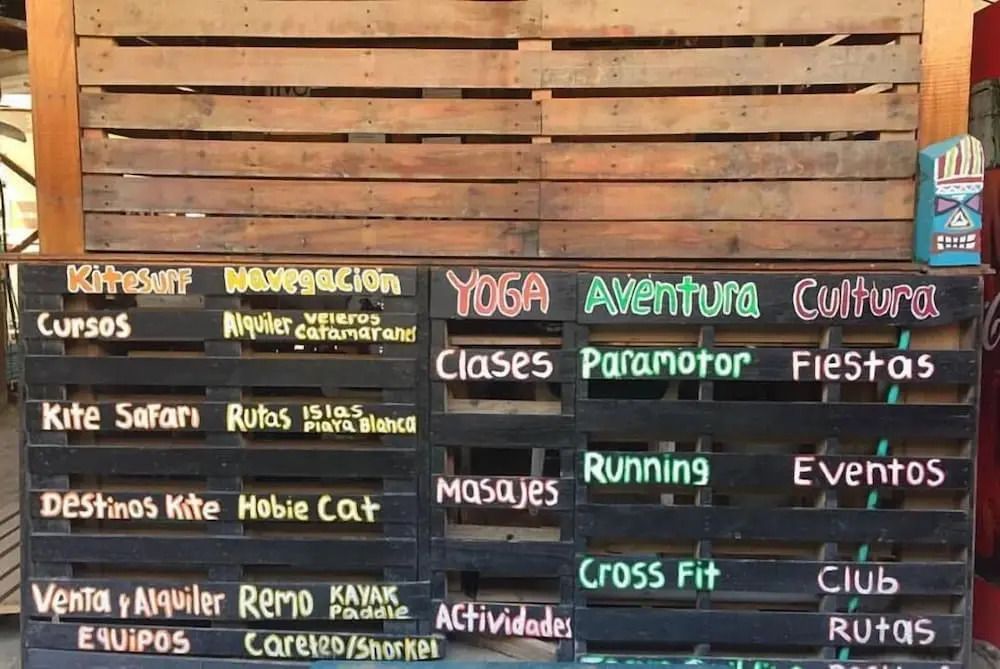 Kitesurf
Cursos
Kite Safari
Destinos Kite
Venta y Alquiler
Equipos
Navegacion
Alquiler Veleros
Catamaranes
Rutas Islas
Playa Blanca
Hobie Cat
Remo KAYAK
Paddle
Careteo/Snorkel
YOGA
Clases
Masajes
Actividades
Aventura
Paramotor
Running
Cross Fit
Cultura
Fiestas
Eventos
Club
Rutas